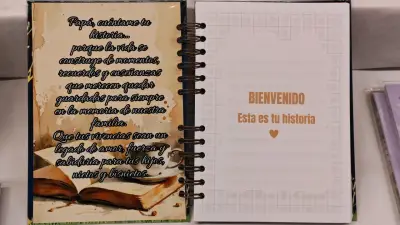 Papá, cuéntame tu
historia...
porque la vida se
construye de momentos,
recuerdos y enseñanzas
que merecen quedar
guardadas para siempre
en la memoria de nuestra
familia.
Que tus vivencias sean un
legado de amor, fuerza y
sabiduría para tus hijos,
nietos y bisnietos...
BIENVENIDO
Esta es tu historia